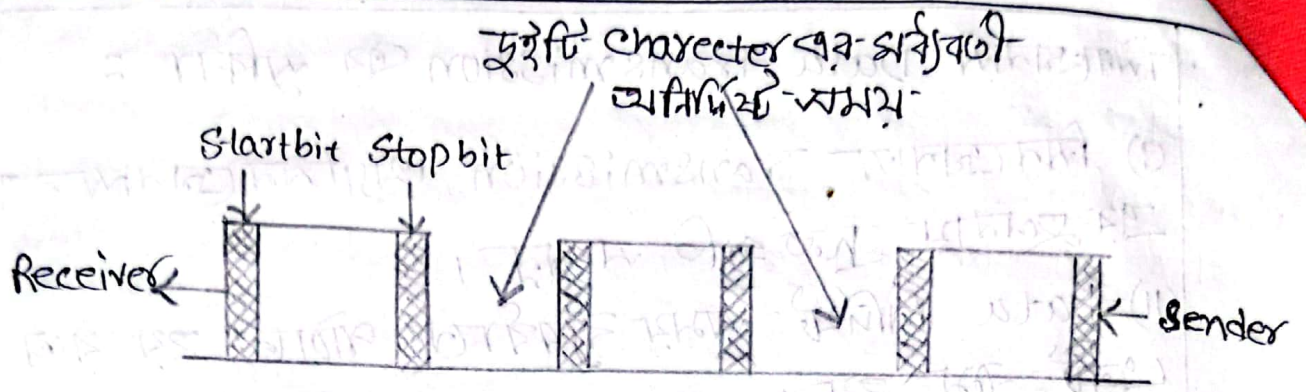 দুইটি charecter এর মধ্যবর্তী
অনির্দিষ্ট সময়
Startbit Stopbit
Receiver
Sender